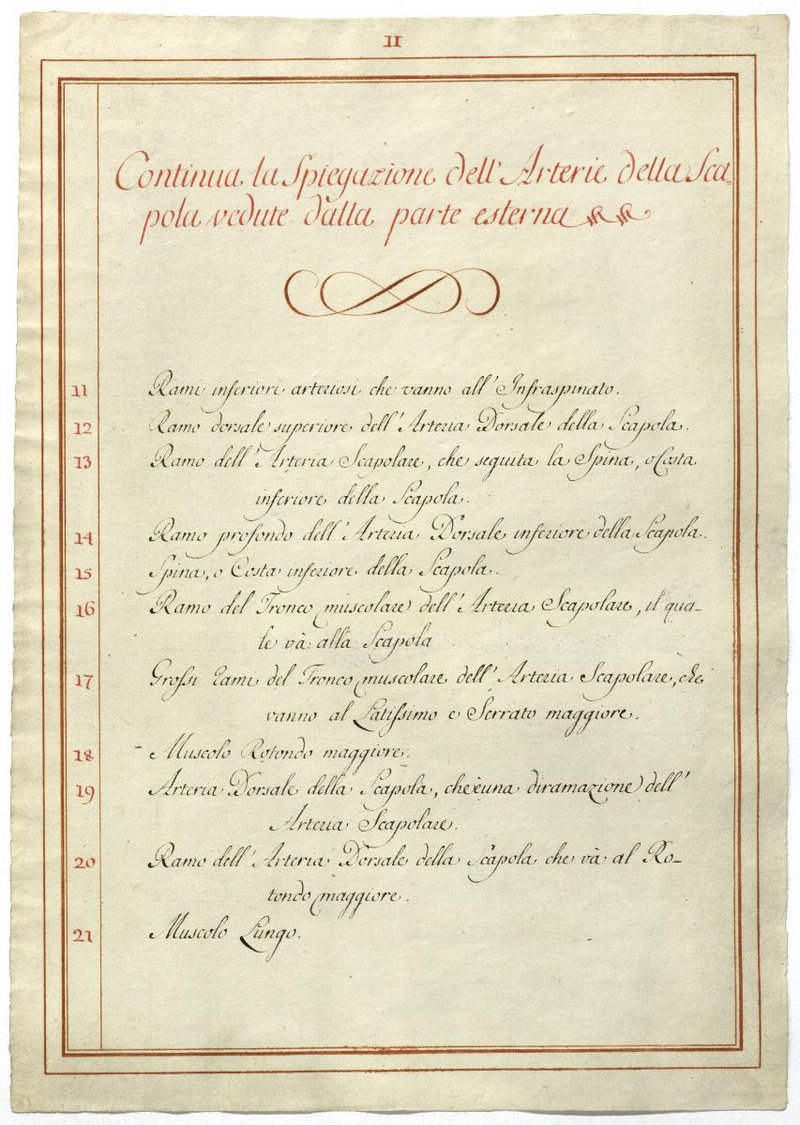 II
Continua la Spiegazione dell'Arterie della Sca=
pola vedute dalla parte esterna
11 Rami inferiori arteriosi che vanno all'Infraspinato.
12 Ramo dorsale superiore dell'Arteria Dorsale della Scapola.
13 Ramo dell'Arteria Scapolare, che seguita la Spina, o Costa
inferiore della Scapola.
14 Ramo profondo dell'Arteria Dorsale inferiore della Scapola.
15 Spina, o Costa inferiore della Scapola.
16 Ramo del Tronco muscolare dell'Arteria Scapolare, il qua-
le và alla Scapola
17 Grossi rami del Tronco muscolare dell'Arteria Scapolare, che
vanno al Latissimo e Serrato maggiore.
18 Muscolo Rotondo maggiore.
19 Arteria Dorsale della Scapola, che è una diramazione dell'
Arteria Scapolare.
20 Ramo dell'Arteria Dorsale della Scapola che và al Ro-
tondo maggiore.
21 Muscolo Lungo.